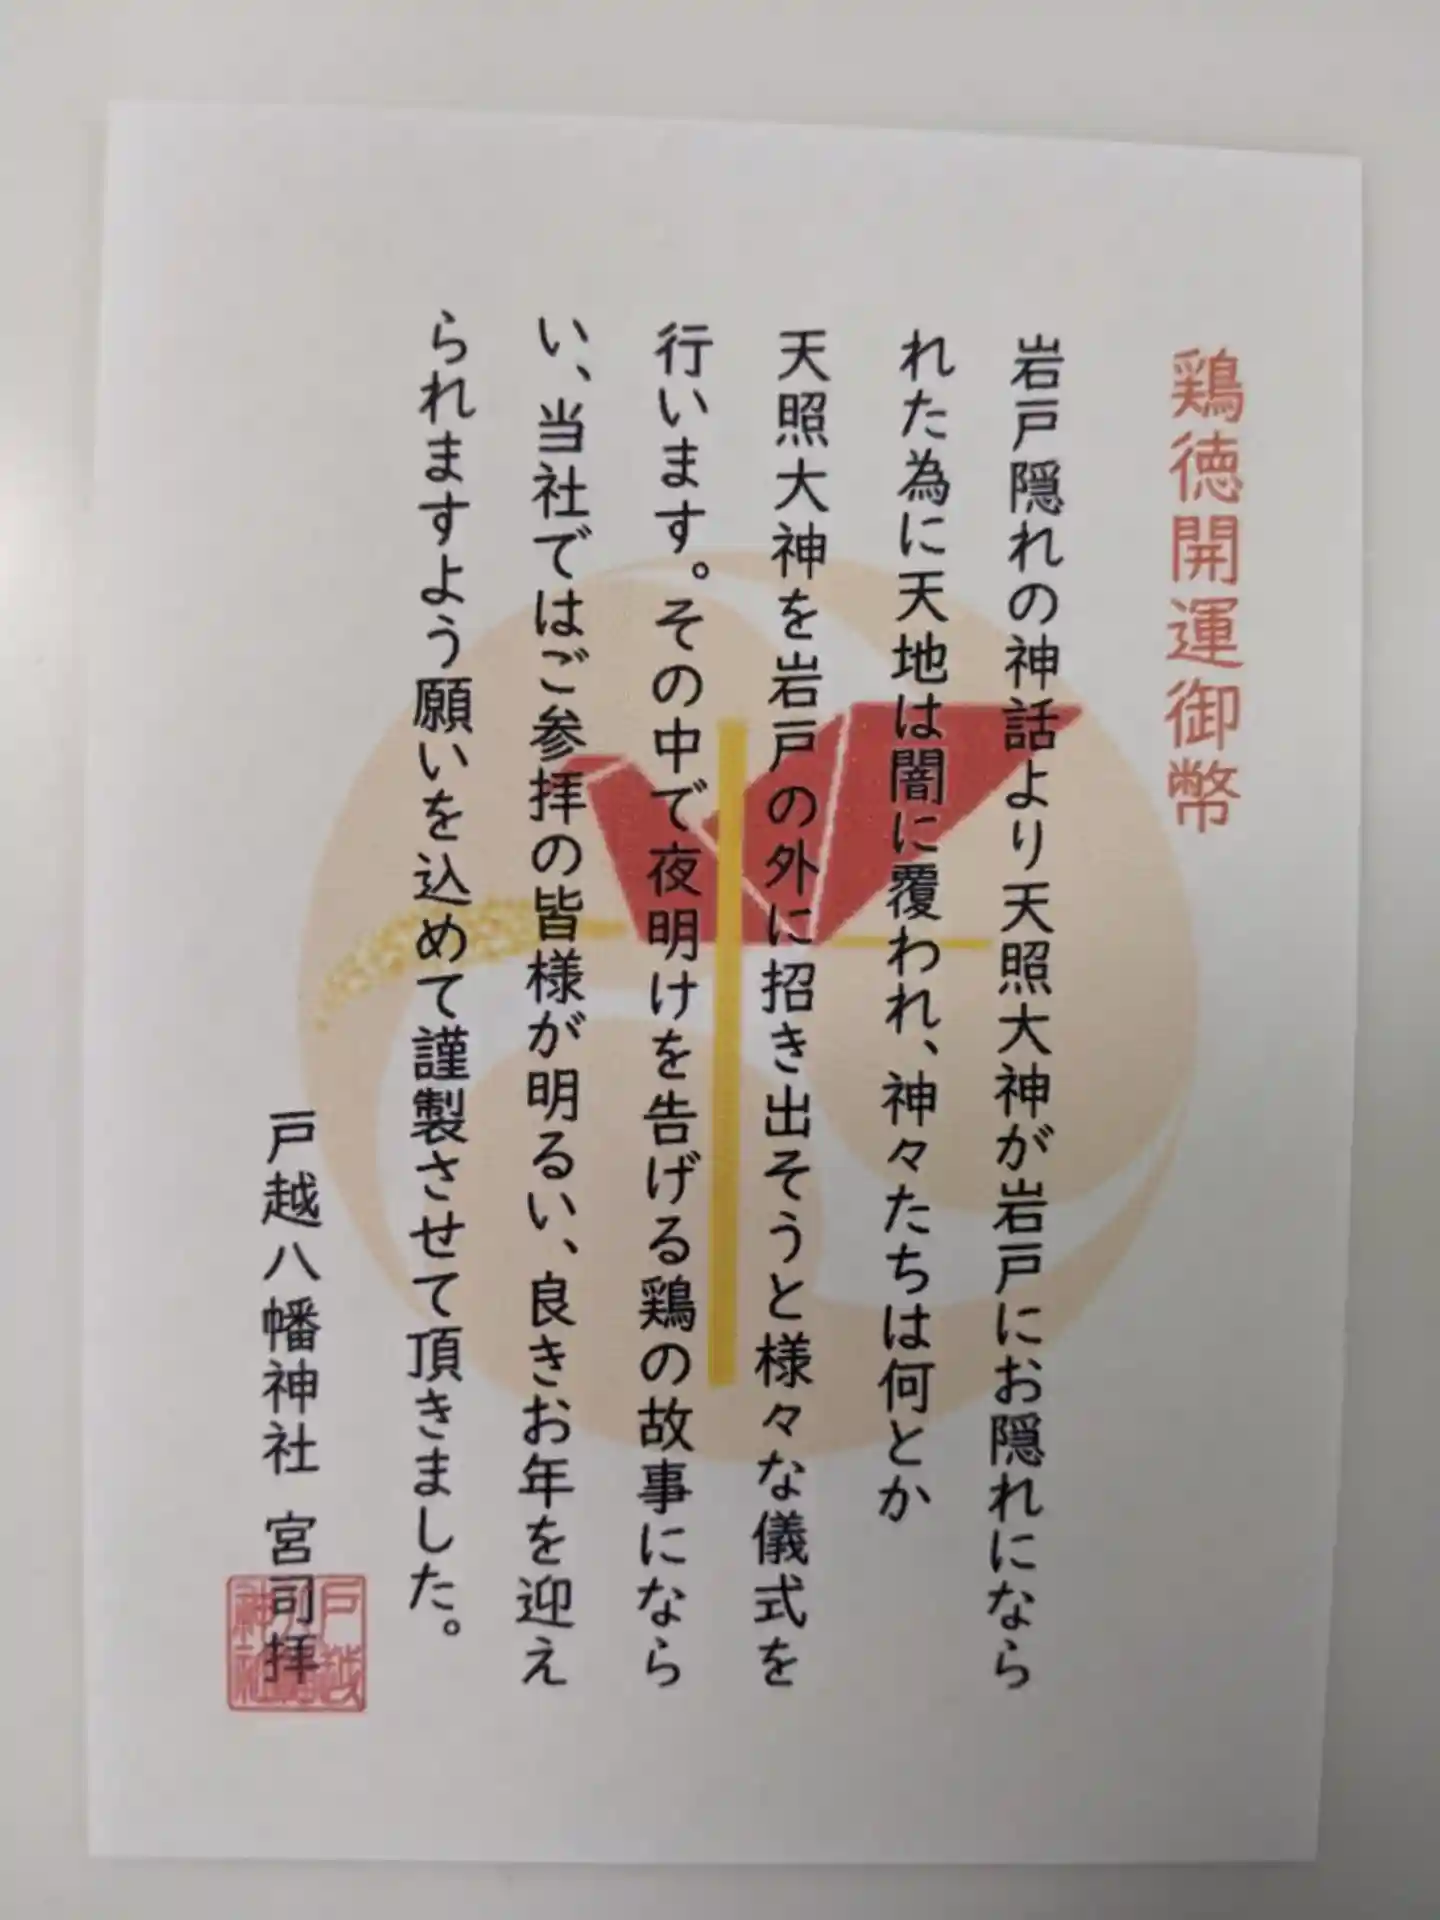 鶏徳開運御幣
岩戸隠れの神話より天照大神が岩戸にお隠れになら
れた為に天地は闇に覆われ、神々たちは何とか
天照大神を岩戸の外に招き出そうと様々な儀式を
行います。その中で夜明けを告げる鶏の故事になら
い、当社ではご参拝の皆様が明るい、良きお年を迎え
られますよう願いを込めて謹製させて頂きました。
戸越八幡神社 宮司拝
戸越
八幡
神社